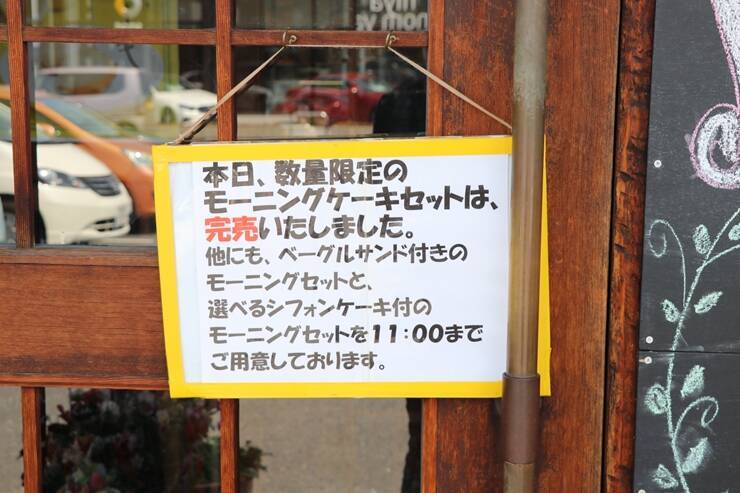 本日、数量限定の
モーニングケーキセットは、
完売いたしました。
他にも、ベーグルサンド付きの
モーニングセットと、
選べるシフォンケーキ付の
モーニングセットを11：00まで
ご用意しております。